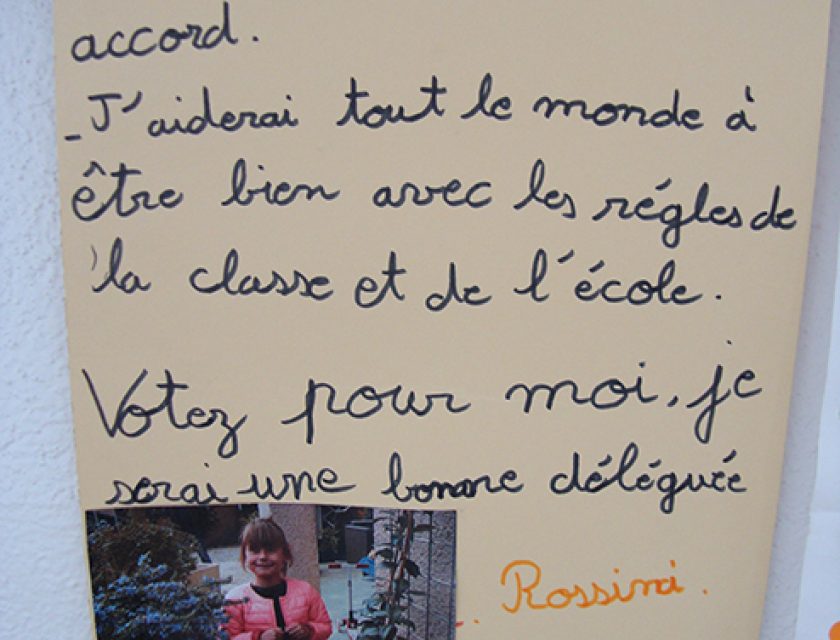 accord.
- J'aiderai tout le monde à
être bien avec les régles de
la classe et de l'école.
Votez pour moi, je
serai une bonne déléguée
Rossini.